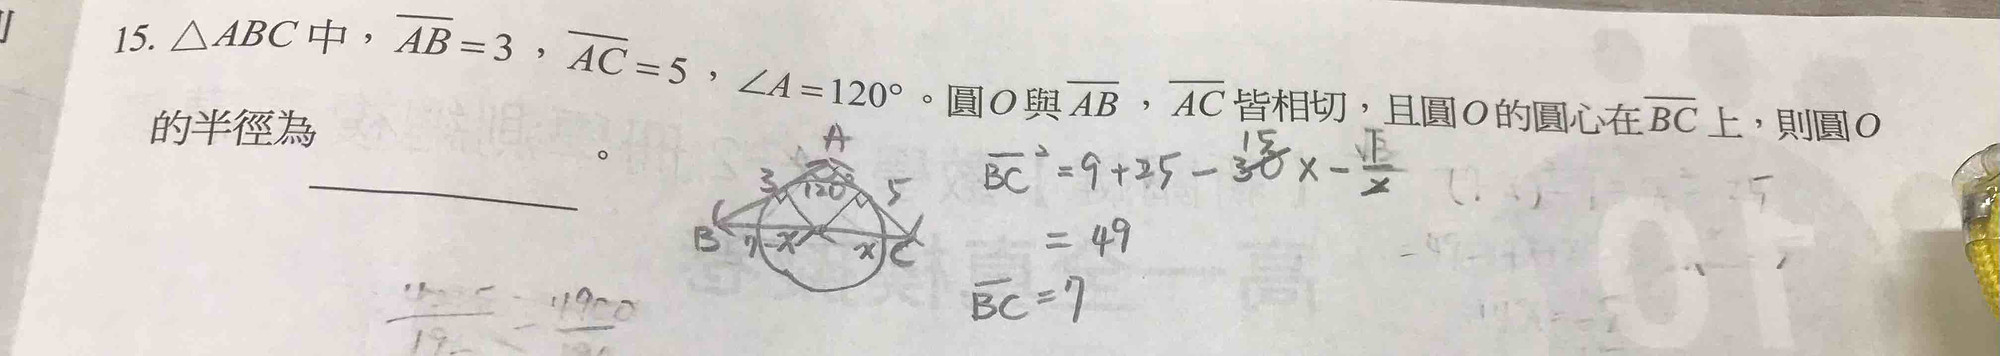 15. △ABC 中，AB = 3，AC = 5，∠A = 120°。圓O與AB，AC皆相切，且圓O的圓心在BC上，則圓O
的半徑為＿＿＿＿＿＿。
A
3 120° 5
B 7-x x C
BC² = 9 + 25 - 30 15 x -
= 49
BC = 7